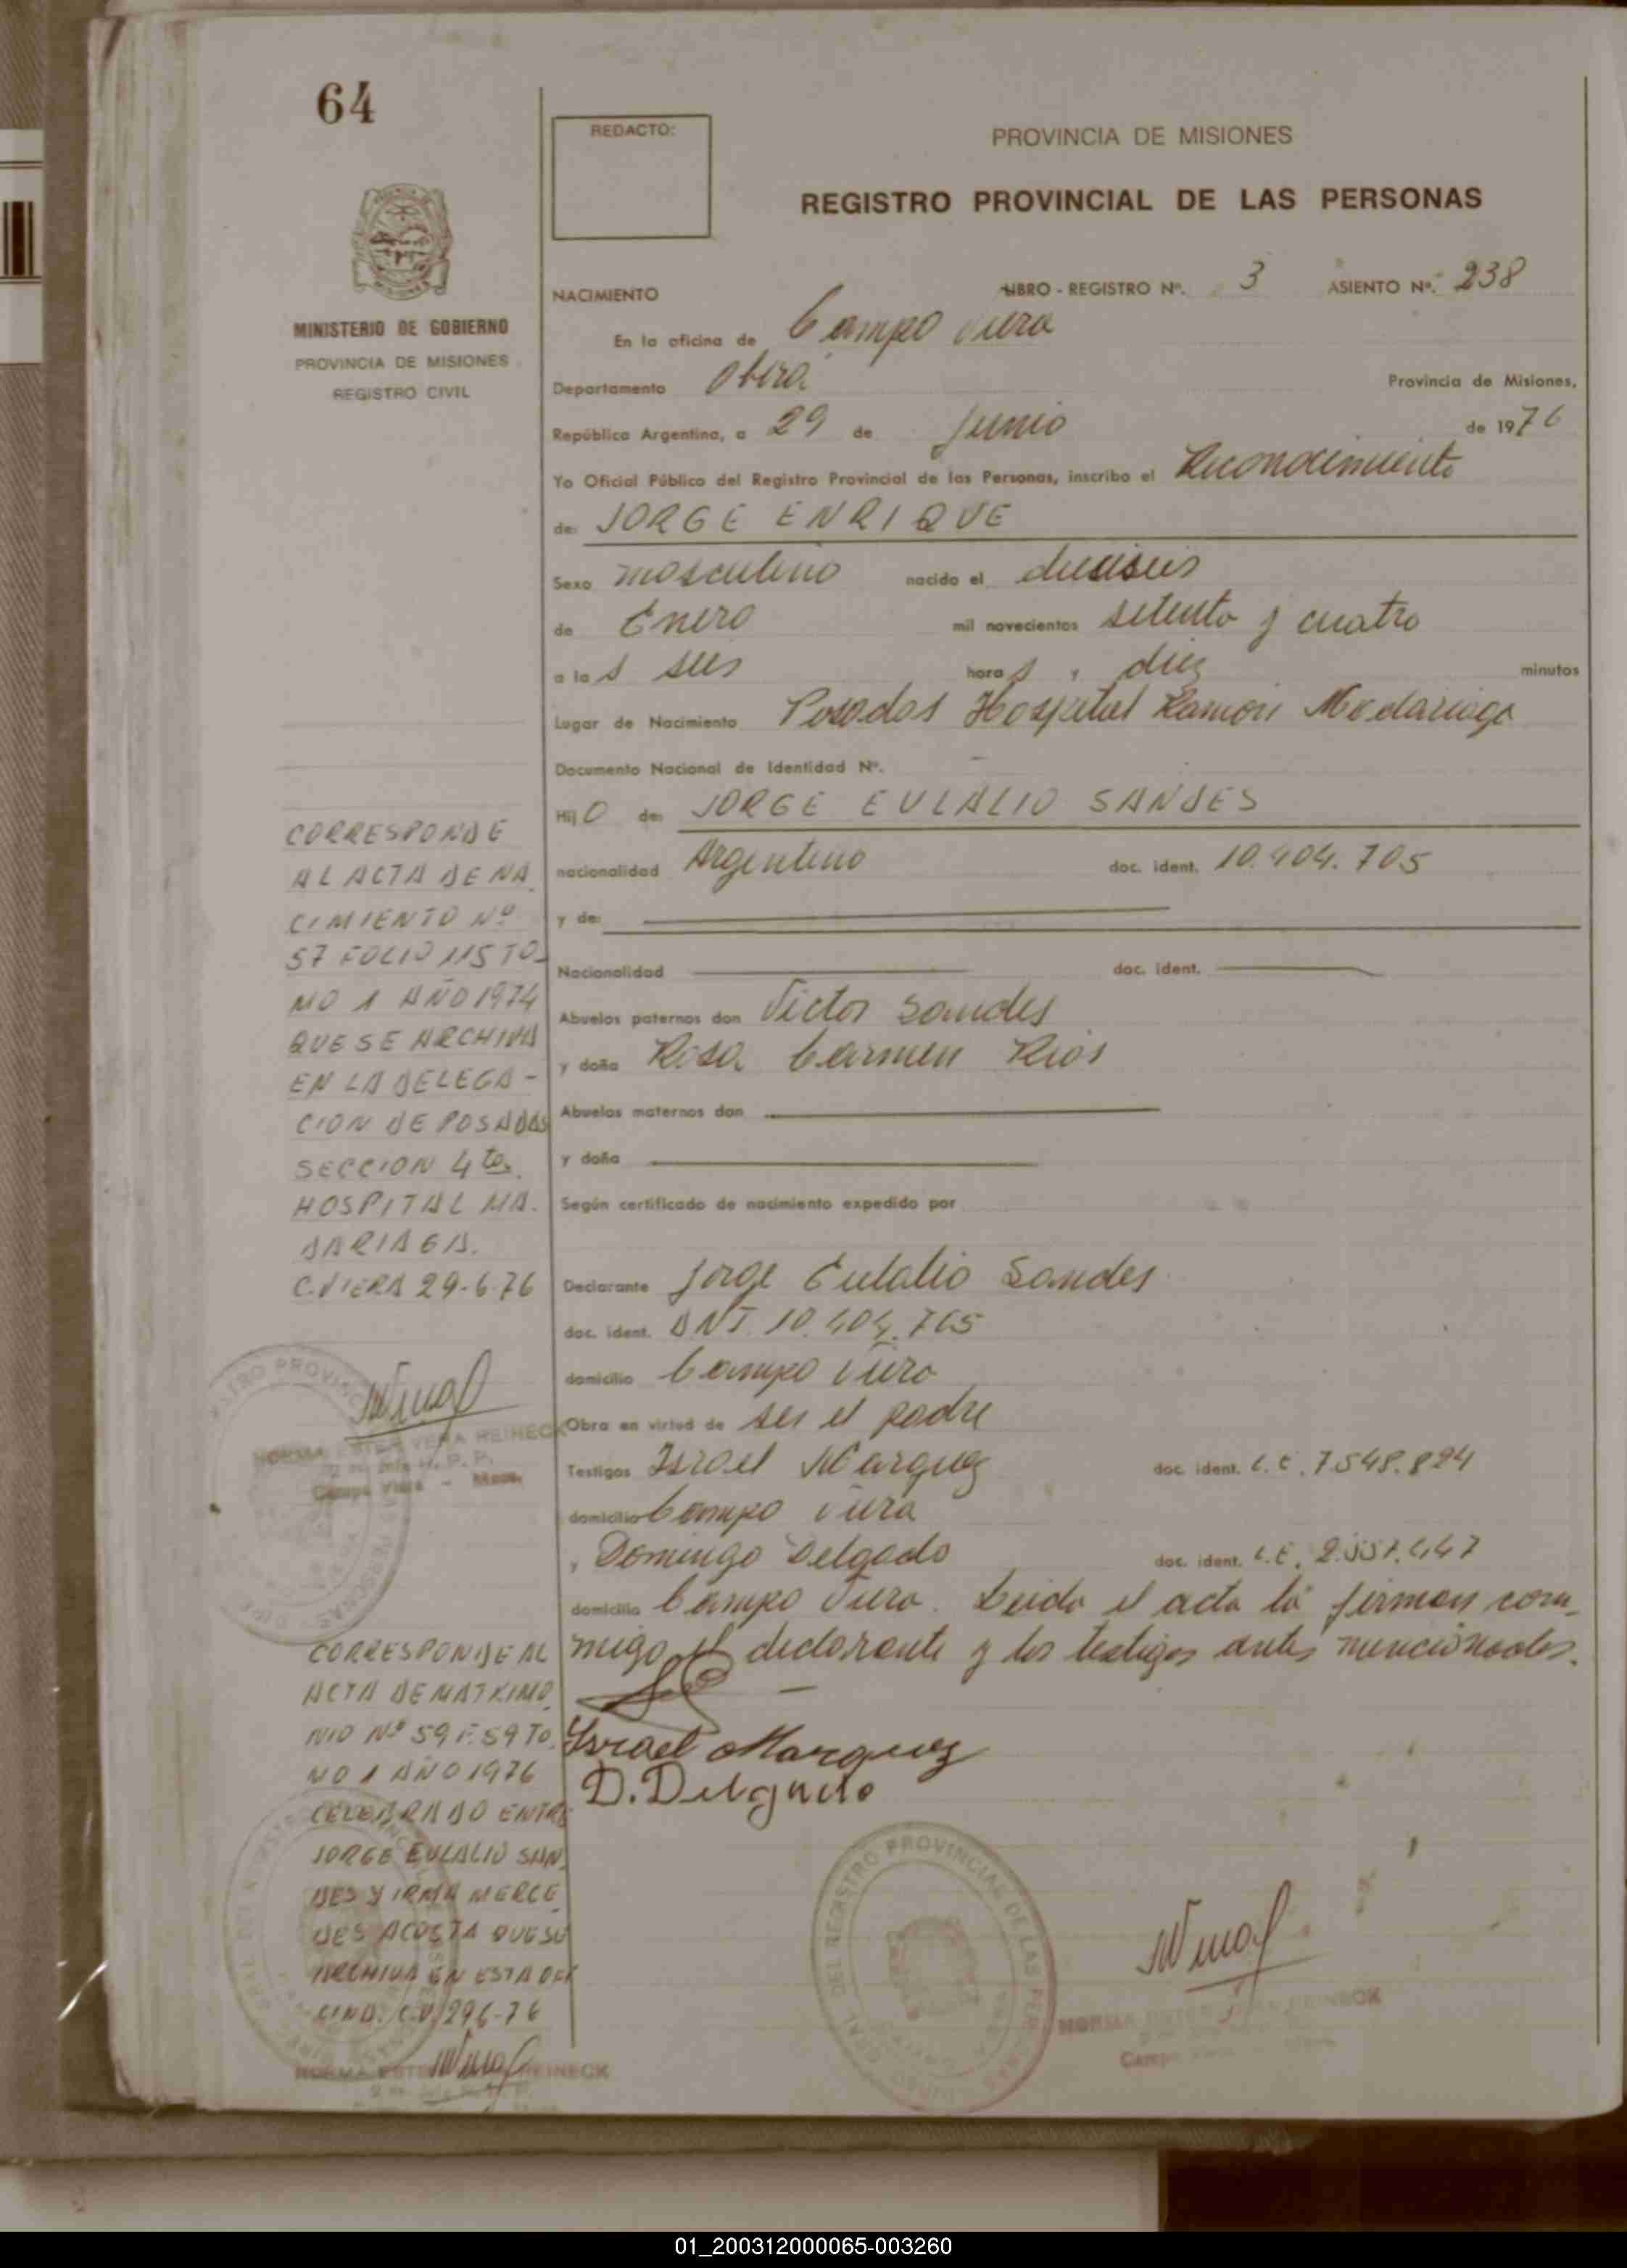 64
REDACTO:
PROVINCIA DE MISIONES
REGISTRO PROVINCIAL DE LAS PERSONAS
MINISTERIO DE GOBIERNO
PROVINCIA DE MISIONES
REGISTRO CIVIL
NACIMIENTO LIBRO - REGISTRO Nº. 3 ASIENTO Nº. 238
En la oficina de Campo Viera
Departamento Oberá Provincia de Misiones,
República Argentina, a 29 de Junio de 1976
Yo Oficial Público del Registro Provincial de las Personas, inscribo el Reconocimiento
de: JORGE ENRIQUE
Sexo masculino nacido el dieciseis
de Enero mil novecientos setenta y cuatro
a las seis horas, diez minutos
Lugar de Nacimiento Posadas Hospital Ramón Madariaga
Documento Nacional de Identidad Nº. -
Hijo de: JORGE EULALIO SANDES
nacionalidad Argentino doc. ident. 10.404.705
y de:
Nacionalidad doc. ident.
Abuelos paternos don Victor Sandes
y doña Rosa Carmen Rios
Abuelos maternos don
y doña
Según certificado de nacimiento expedido por
Declarante Jorge Eulalio Sandes
doc. ident. DNI. 10.404.765
domicilio Campo Viera
Obra en virtud de ser el padre
Testigos Israel Marquez doc. ident. L.E. 7.548.824
domicilio Campo Viera
, Domingo Delgado doc. ident. L.E.
domicilio Campo Viera. Leida el acta la firman con-
migo el declarante y los testigos antes mencionados.
Israel Marquez
D. Delgado
CORRESPONDE
AL ACTA DE NA
CIMIENTO Nº
57 FOLIO 115 TO-
MO 1 AÑO 1974
QUE SE ARCHIVA
EN LA DELEGA-
CION DE POSADAS
SECCION 4ta.
HOSPITAL MA-
DARIAGA.
C. VIERA 29-6-76
NORMA ESTER VERA REINECK
Campo Viera - Mnes.
CORRESPONDE AL
ACTA DE MATRIMO
NIO Nº 59 F. 59 TO
MO 1 AÑO 1976
CELEBRADO ENTRE
JORGE EULALIO SAN
DES Y IRMA MERCE
DES ACOSTA QUE SE
ARCHIVA EN ESTA OFI
CINA. C.V. 29-6-76
NORMA ESTER REINECK
REGISTRO PROVINCIAL DE LAS PERSONAS
NORMA ESTER REINECK
Campo
01_200312000065-003260